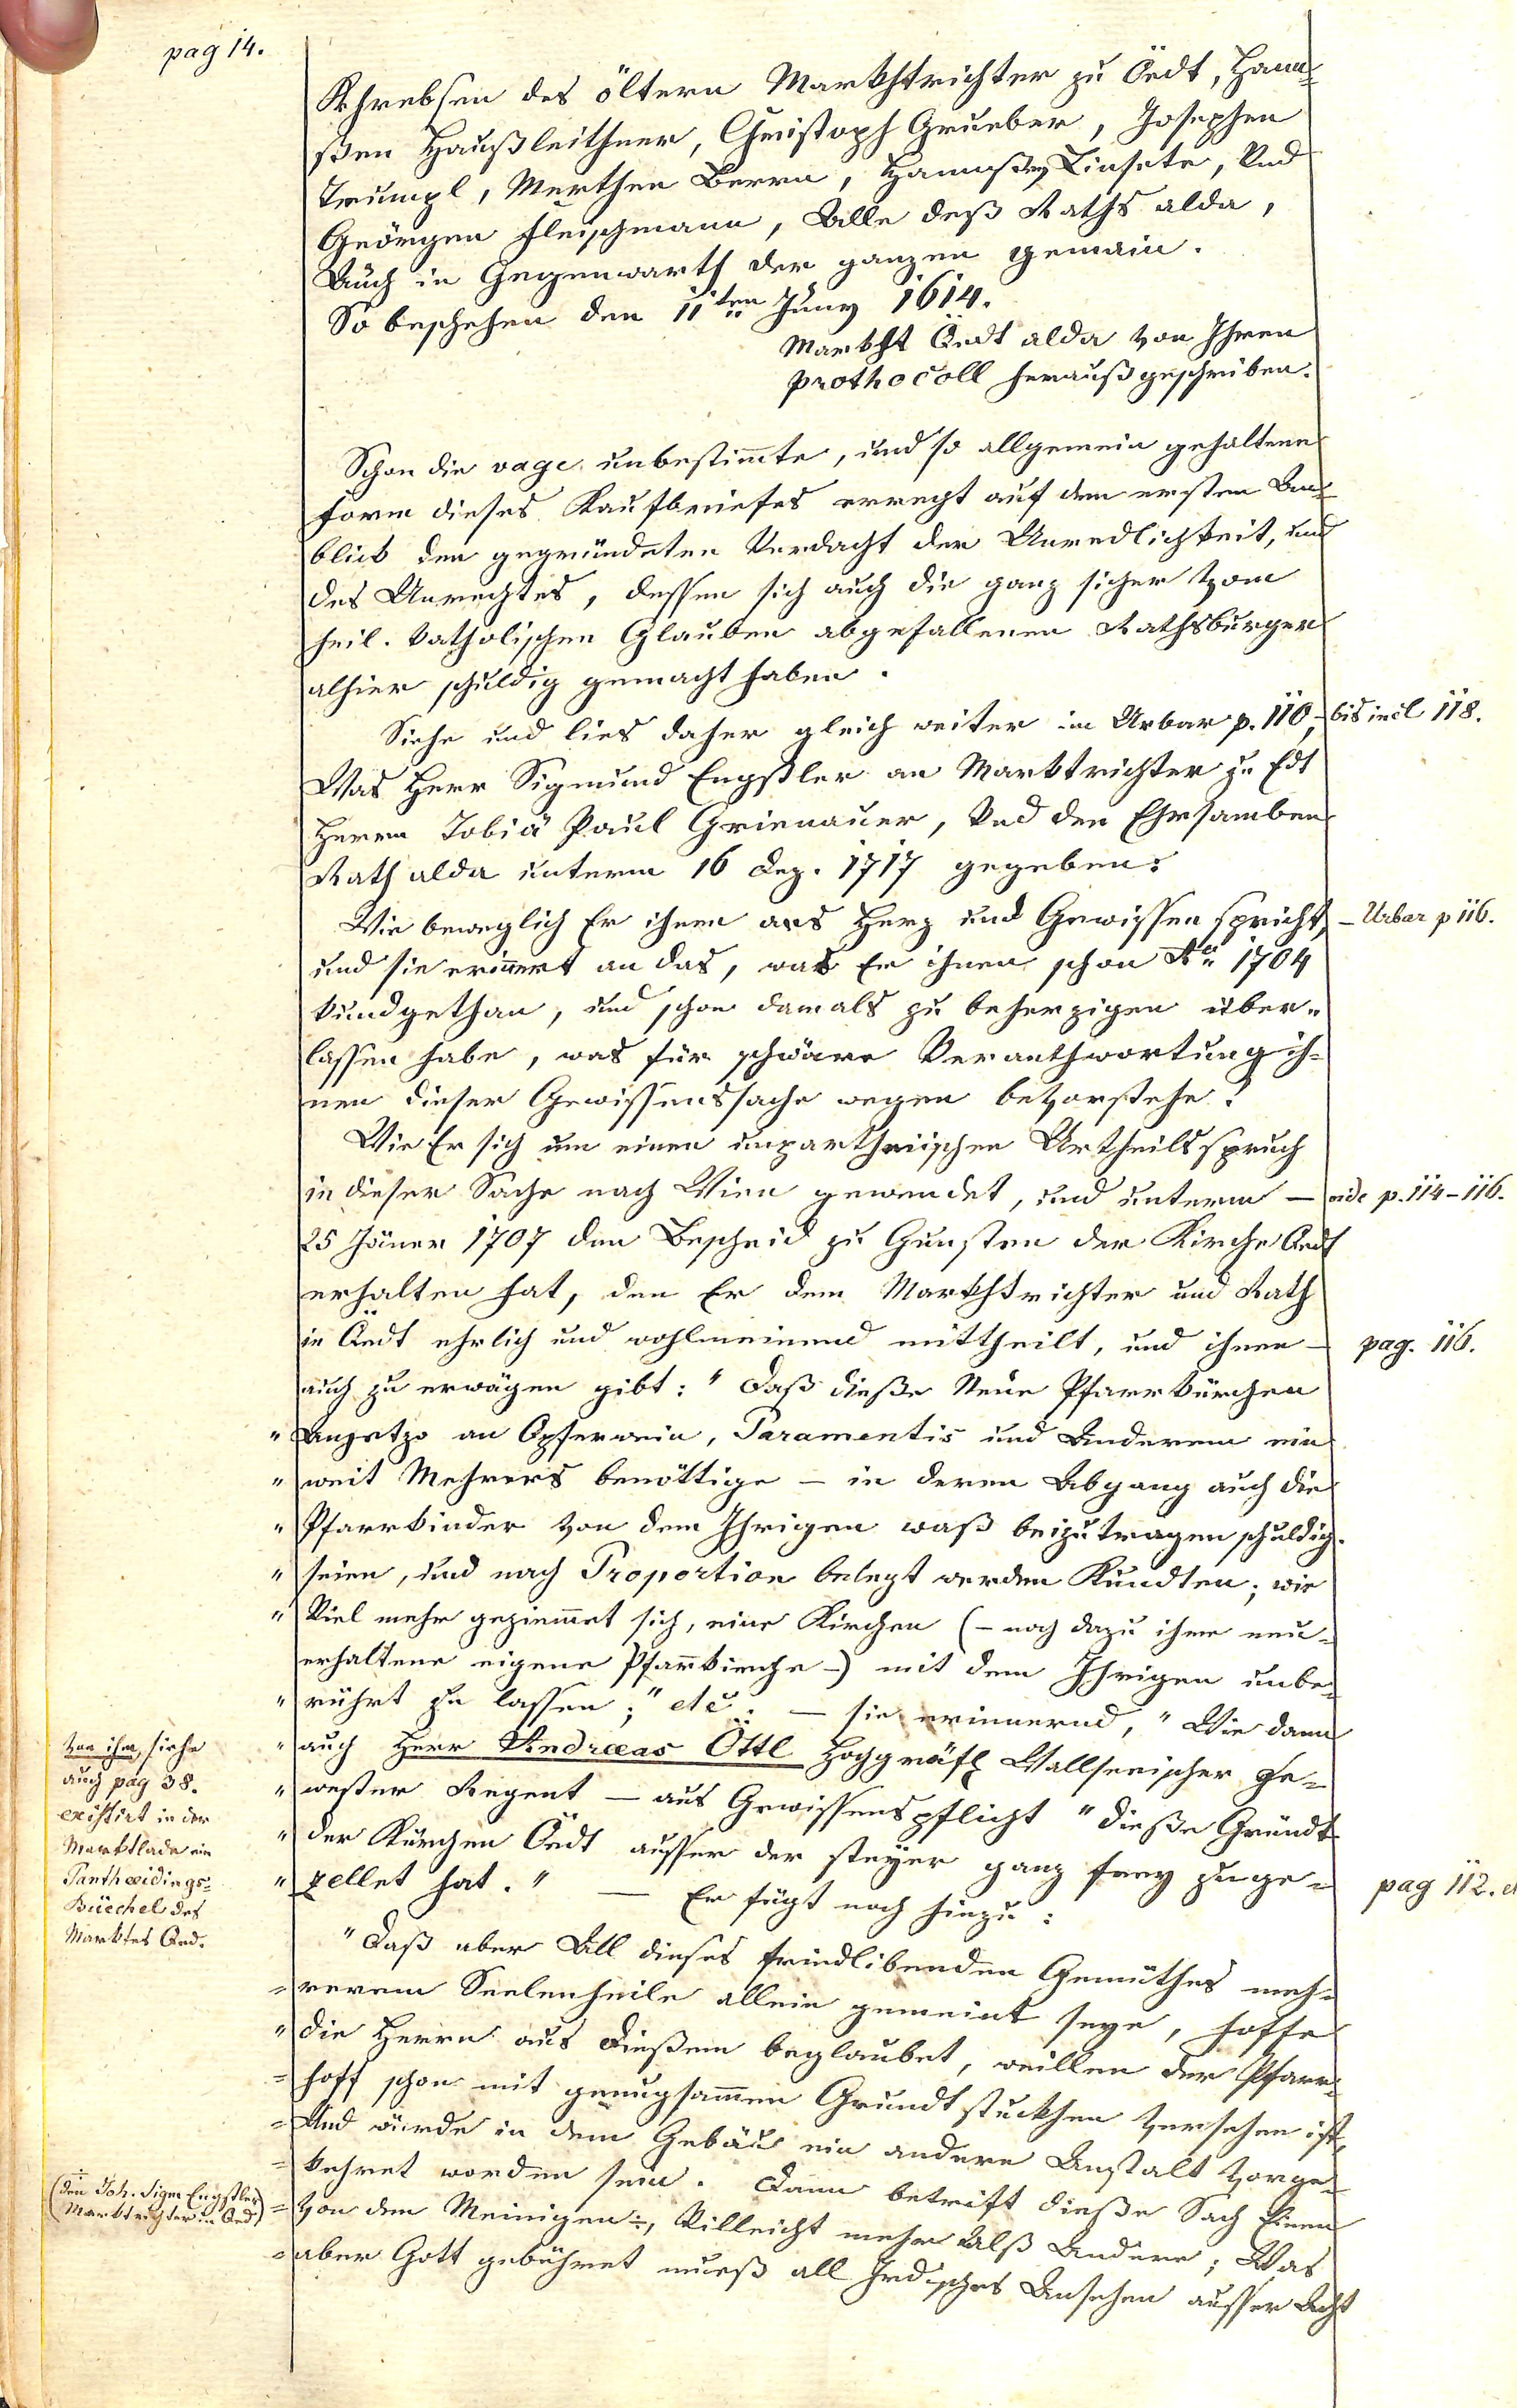 pag 14.
Khrebsen des öltern Markhtrichter zu Öedt, Hann-
ßen Haußleithner, Christoph Grueber, Josephen
Trumpl, Merthen Berrn, Hannßen Linsete, Und
Geörgen Fleischmann, Alle deß Raths alda,
Auch in Gegenwarth der ganzen gemain.
So beschehen den 11ten Juny 1614.
Markht Öedt alda von Ihren
Prothocoll heraußgeschriben.
Schon die vage unbestimmte, und so allgemein gehaltene
Form dieses Kaufbriefes erregt auf den ersten An-
blick den gegründeten Verdacht der Unredlichkeit, und
des Unrechtes, dessen sich auch die ganz sicher vom
heil. katholischen Glauben abgefallenen Rathsbürger
alhier schuldig gemacht haben.
Siehe und lies daher gleich weiter im Urbar p. 110, bis incl 118.
Was Herr Sigmund Engstler an Marktrichter zu Edt
Herrn Tobiä Paul Grienauer, Und den Ehrsamben
Rath alda unterm 16 Dez. 1717 gegeben:
Wie beweglich Er ihnen ans Herz und Gewissen spricht, – Urbar p 116.
und sie erinnert an das, was Er ihnen schon Ao 1704
kundgethan, und schon damals zu beherzigen über-
lassen habe, was für schwäre Veranthwortung ih-
nen dieser Gewissenssache wegen bevorstehe!
Wie Er sich um einen unpartheiischen Urtheilsspruch
in dieser Sache nach Wien gewendet, und unterm – vide p. 114–116.
25 Jäner 1707 den Bescheid zu Gunsten der Kirche Oedt
erhalten hat, den Er dem Markhtrichter und Rath
in Öedt ehrlich und wohlmeinend mittheilt, und ihnen – pag. 116.
auch zu erwägen gibt: "Daß dieße Neue Pfarrkürchen
" Anjetzo an Opferwein, Paramentis und Anderem ein
" weit Mehrers benöttige – in deren Abgang auch die
" Pfarrkinder von dem Ihrigen waß beizutragen schuldig
" seien, und nach Proportion belegt werden Kundten; wie
" Viel mehr geziemmet sich, eine Kirchen (– noch dazu ihre neu-
erhaltene eigene Pfarrkirche –) mit dem Ihrigen unbe-
" rührt zu lassen;" etc: – sie erinnernd, " Wie dann
" auch Herr Andreas Öttl Hochgräfl Wallseeischer ge-
" wester Regent – aus Gewissenspflicht "dieße Gründt
" der Kürchen Öedt ausser der steyer ganz frey zuge-
" zellet hat." – Er fügt noch hinzu:
von ihm, siehe
auch pag 38.
existirt in der
Marktlade ein
Pantheidings-
Büechel des
Marktes Oed.
pag 112.
"Daß aber All dieses friedlibenden Gemüthes meh-
" rerem Seelenheile allein gemeint seye, hoffe
" die Herrn aus Dießem beglaubet, weillen der Pfarr-
" hoff schon mit genugsammen Grundtstuckhen versehen ist,
" Und würde in dem Gebäu ein andere Anstalt vorge-
" kehret worden sein. Dann betrift dieße Sach Einen
" von den Meinigen ÷, Villeicht mehr Alß Andere; Was
" aber Gott gebühret mueß all Irdisches Ansehen ausser Acht
(÷ den Joh. Sigm Engstler
Marktrichter in Oed)